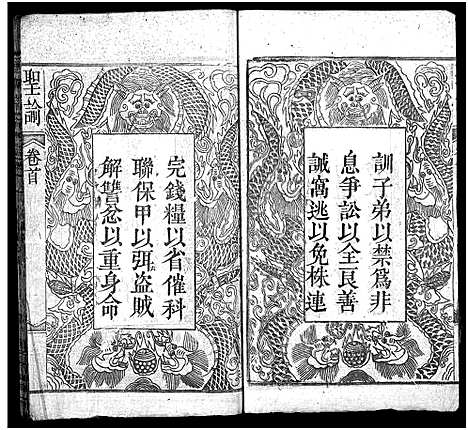 訓子弟以禁爲非
息爭訟以全良善
誡窩逃以免株連
完錢糧以省催科
聯保甲以弭盗賊
解讐忿以重身命
聖諭
卷首